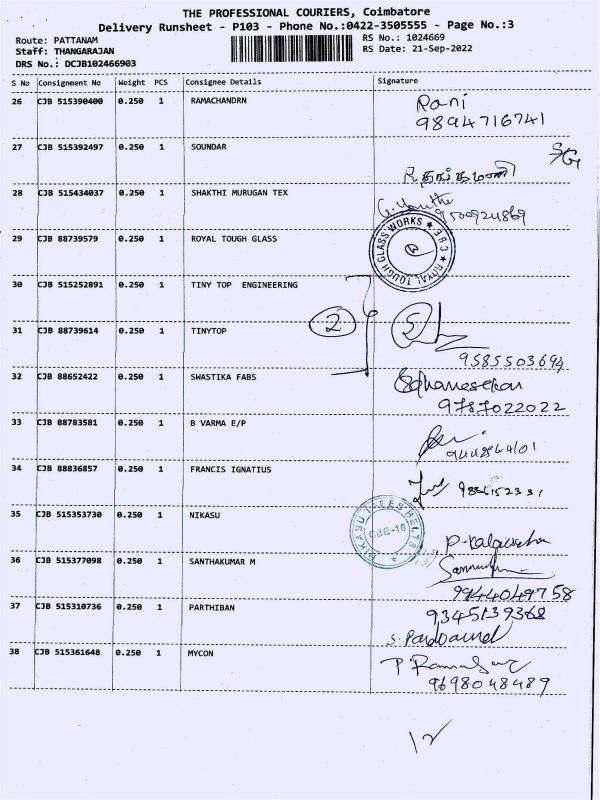 THE PROFESSIONAL COURIERS, Coimbatore
Delivery Runsheet - P103 - Phone No.:0422-3505555 - Page No.:3
Route: PATTANAM RS No.: 1024669
Staff: THANGARAJAN RS Date: 21-Sep-2022
DRS No.: DCJB102466903
S No Consignment No Weight PCS Consignee Details Signature
26 CJB 515390400 0.250 1 RAMACHANDRN Rani
9894716741
27 CJB 515392497 0.250 1 SOUNDAR
R. தங்கமணி
28 CJB 515434037 0.250 1 SHAKTHI MURUGAN TEX
9500924869
29 CJB 88739579 0.250 1 ROYAL TOUGH GLASS ROYAL TOUGH GLASS WORKS ★ CBE ★
30 CJB 515252891 0.250 1 TINY TOP ENGINEERING
2
31 CJB 88739614 0.250 1 TINYTOP
9585503694
32 CJB 88652422 0.250 1 SWASTIKA FABS Sdhanasekar
9787022022
33 CJB 88783581 0.250 1 B VARMA E/P
34 CJB 88836857 0.250 1 FRANCIS IGNATIUS
35 CJB 515353730 0.250 1 NIKASU CBE-16
36 CJB 515377098 0.250 1 SANTHAKUMAR M
9944049758
37 CJB 515310736 0.250 1 PARTHIBAN 9345139368
38 CJB 515361648 0.250 1 MYCON
9698048489
12